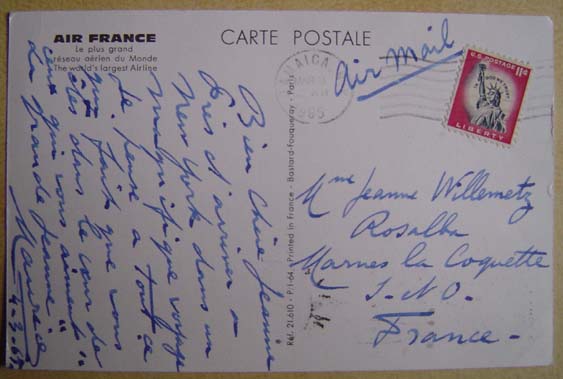 AIR FRANCE
Le plus grand
réseau aérien du Monde
The world's largest Airline
CARTE POSTALE
Air Mail
U.S. POSTAGE 11¢
IN GOD WE TRUST
LIBERTY
JAMAICA
1965
Bien Chère Jeanne
Près d'arriver à
New York dans un
magnifique voyage
Je pense à tout ce
qui fait que vous
êtes dans le cœur de
ceux qui vous aiment
La grande Jeanne"
Maurice
4-3-65
Réf. 21.610 - P.I-64 - Printed in France - Bastard-Fouqueray - Paris
Mme Jeanne Willemetz
Rosalba
Marnes la Coquette
S-&-O-
France-